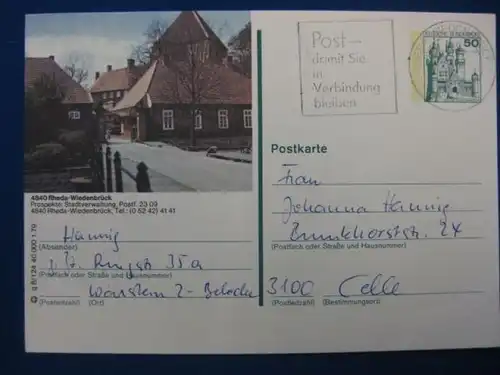 Post –
damit Sie
in
Verbindung
bleiben
50
4840 Rheda-Wiedenbrück
Prospekte: Stadtverwaltung, Postf. 23 09
4840 Rheda-Wiedenbrück, Tel.: (0 52 42) 41 41
Postkarte
Frau
Johanna Hannig
24
(Postfach oder Straße und Hausnummer)
3100 Celle
(Postleitzahl) (Bestimmungsort)
Hannig
(Absender)
35a
(Postfach oder Straße und Hausnummer)
Warstein 2-
(Postleitzahl) (Ort)